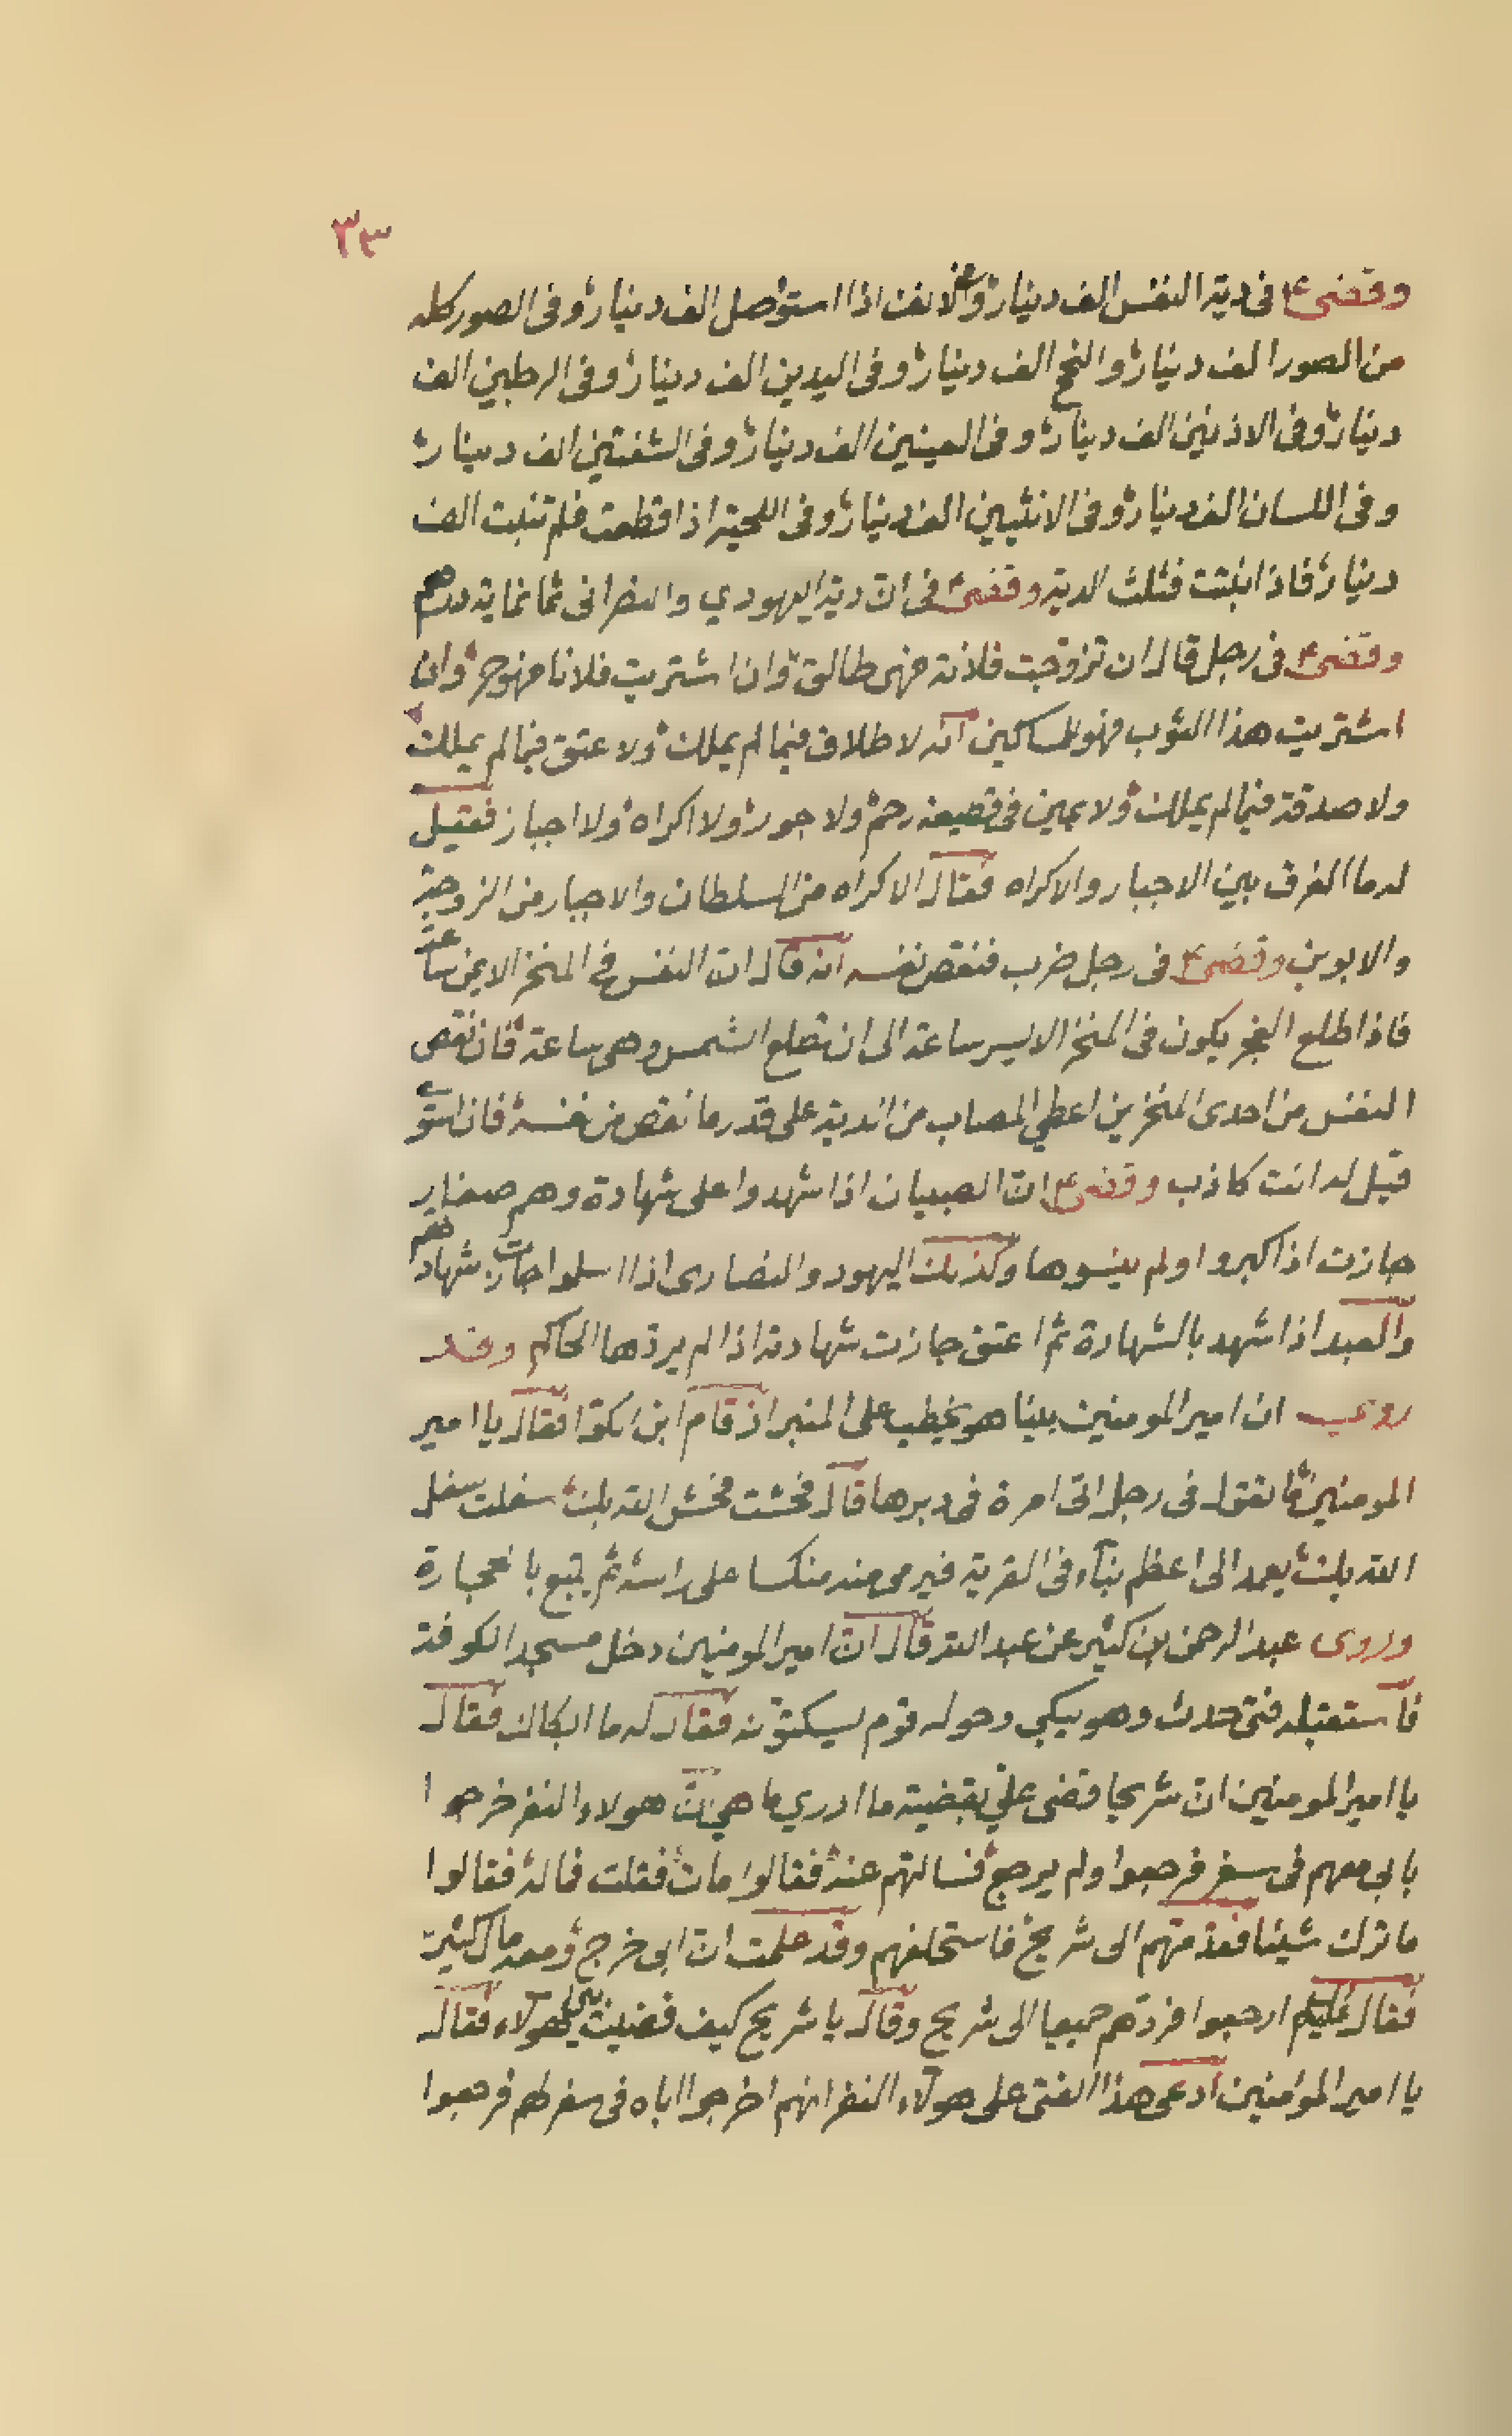 ٣٣
وقضىٰ ع فى دية النفس الف دينار وفى الانف اذا استوصل الف دينار وفى الصور كله
من الصور الف دينار والبح الف دينار وفى اليدين الف دينار وفى الرجلين الف
دينار وفى الاذنين الف دينار وفى العينين الف دينار وفى الشفتين الف دينار
وفى اللسان الف دينار وفى الانثيين الف دينار وفى اللحية اذا قطعت فلم تنبت الف
دينار فاذا انبتت فثلث الدية وقضى ع فى ان دية اليهودي والنصرانى ثمانماية درهم
وقضى ع فى رجل قال ان تزوجت فلانة فهى طالق وان اشتريت فلانا فهو حر وان
اشتريت هذا الثوب فهو للمساكين انه لا طلاق فيما لم يملك ولا عتق فيما لم يملك
ولا صدقة فيما لم يملك ولا يمين فى قطيعة رحم ولا جور ولا اكراه ولا اجبار فقيل
له ما الفرق بين الاجبار والاكراه فقال الاكراه من السلطان والاجبار من الزوجة
والابوين وقضى ع فى رجل ضرب فنقص نفسه انه قال ان النفس فى المنخر الايمن ساعة
فاذا طلع الفجر يكون فى المنخر الايسر ساعة الى ان تطلع الشمس وهى ساعة فان نقص
النفس من احدى المنخرين اعطي المصاب من الدية على قدر ما نقص من نفسه فان استوى
قيل له انت كاذب وقضى ع ان الصبيان اذا شهدوا على شهادة وهم صغار
جازت اذا كبروا ولم ينسوها وكذلك اليهود والنصارى اذا اسلموا جازت شهادتهم
والعبد اذا شهد بالشهادة ثم اعتق جازت شهادته اذا لم يردها الحاكم وقد
روى ان امير المومنين بينا هو يخطب على المنبر اذ قام ابن الكوا فقال يا امير
المومنين ما تقول فى رجل اتى امرة فى دبرها قال فحشت فحش الله بك سفلت سفل
الله بك يعمد الى اعظم بناء فى القرية فيرمى منه منكسا على راسه ثم يتبع بالحجارة
وروى عبد الرحمن بن كثير عن عبد الله قال ان امير المومنين دخل مسجد الكوفة
فاستقبله فتى حدث وهو يبكي وحوله قوم يسكتونه فقال له ما ابكاك فقال
يا امير المومنين ان شريحا قضى علي بقضية ما ادري ما هي ان هولاء النفر خرجوا
بابي معهم فى سفر فرجعوا ولم يرجع فسالتهم عنه فقالوا مات فقلت فماله فقالوا
ما ترك شيئا فقدمتهم الى شريح فاستحلفهم وقد علمت ان ابى خرج ومعه مال كثير
فقال عليكم ارجعوا فردهم جميعا الى شريح وقال يا شريح كيف قضيت بين هولاء فقال
يا امير المؤمنين ادعى هذا الفتى على هولاء النفر انهم اخرجوا اباه فى سفر لهم فرجعوا